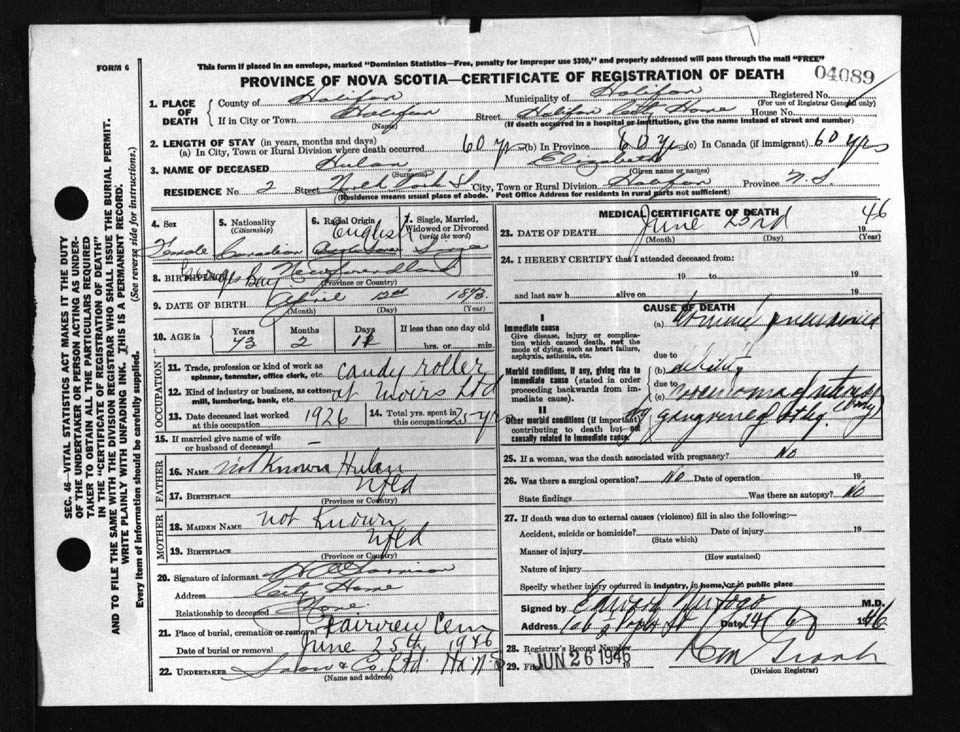 This form if placed in an envelope, marked "Dominion Statistics—Free, penalty for improper use $300," and properly addressed will pass through the mail "FREE"
FORM 6
PROVINCE OF NOVA SCOTIA—CERTIFICATE OF REGISTRATION OF DEATH
04089
1. PLACE OF DEATH { County of Halifax Municipality of Halifax Registered No.
(For use of Registrar General only)
If in City or Town Halifax Street Halifax City Home House No.
(Name) (If death occurred in a hospital or institution, give the name instead of street and number)
2. LENGTH OF STAY (in years, months and days)
(a) In City, Town or Rural Division where death occurred 60 yrs (b) In Province 60 yrs (c) In Canada (if immigrant) 60 yrs
3. NAME OF DECEASED Hulan Elizabeth
(Surname) (Given name or names)
RESIDENCE No. 2 Street City, Town or Rural Division Halifax Province N.S.
(Residence means usual place of abode. Post Office Address for residents in rural parts not sufficient)
4. Sex
Female
5. Nationality
(Citizenship)
Canadian
6. Racial Origin
English
7. Single, Married, Widowed or Divorced
(write the word)
8. BIRTHPLACE Bay Newfoundland
(Province or Country)
9. DATE OF BIRTH April 12th 1873
(Month) (Day) (Year)
10. AGE in { Years 73 Months 2 Days 11 If less than one day old
hrs. or min.
OCCUPATION
11. Trade, profession or kind of work as spinner, teamster, office clerk, etc. candy roller
12. Kind of industry or business, as cotton mill, lumbering, bank, etc. at Moirs Ltd
13. Date deceased last worked at this occupation 1926
14. Total yrs. spent in this occupation 25 yrs
15. If married give name of wife or husband of deceased —
FATHER
16. NAME not Known Hulan
17. BIRTHPLACE Nfld
(Province or Country)
MOTHER
18. MAIDEN NAME not Known
19. BIRTHPLACE Nfld
(Province or Country)
20. Signature of informant
Address City Home
Relationship to deceased None
21. Place of burial, cremation or removal Fairview Cem
Date of burial or removal June 25th 1946
22. UNDERTAKER Snow & Co. Ltd. Hfx N.S.
(Name and address)
MEDICAL CERTIFICATE OF DEATH
23. DATE OF DEATH June 23rd 1946
(Month) (Day) (Year)
24. I HEREBY CERTIFY that I attended deceased from:
19 to 19
and last saw h alive on 19
CAUSE OF DEATH
I
Immediate cause
Give disease, injury or complication which caused death, not the mode of dying, such as heart failure, asphyxia, asthenia, etc.
(a) pneumonia
due to
Morbid conditions, if any, giving rise to immediate cause (stated in order proceeding backwards from immediate cause).
(b) debility
due to
(c) carcinoma of uterus
II
Other morbid conditions (if important) contributing to death but not causally related to immediate cause.
gangrene of
25. If a woman, was the death associated with pregnancy? No
26. Was there a surgical operation? No Date of operation 19
State findings Was there an autopsy? No
27. If death was due to external causes (violence) fill in also the following:—
Accident, suicide or homicide? Date of injury 19
(State which)
Manner of injury
(How sustained)
Nature of injury
Specify whether injury occurred in industry, in home, or in public place
Signed by M.D.
Address Date 24/6 1946
28. Registrar's Record Number
29. Filed JUN 26 1946
(Division Registrar)
SEC. 46—VITAL STATISTICS ACT MAKES IT THE DUTY
OF THE UNDERTAKER OR PERSON ACTING AS UNDERTAKER TO OBTAIN ALL THE PARTICULARS REQUIRED
IN THE "CERTIFICATE OF REGISTRATION OF DEATH"
AND TO FILE THE SAME WITH THE DIVISION REGISTRAR WHO SHALL ISSUE THE BURIAL PERMIT.
WRITE PLAINLY WITH UNFADING INK. THIS IS A PERMANENT RECORD.
(See reverse side for instructions.)
Every item of information should be carefully supplied.